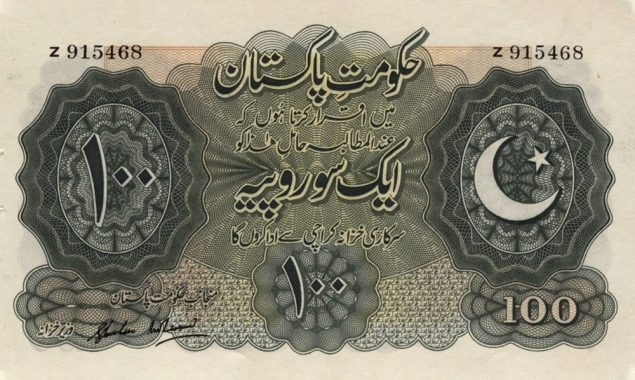 Z 915468
Z 915468
حکومت پاکستان
میں اقرار کرتا ہوں کہ
عند المطالبہ حامل ھٰذا کو
ایک سو روپیہ
سرکاری خزانہ کراچی سے ادا کروں گا
۱۰۰
۱۰۰
منجانب حکومت پاکستان
وزیر خزانہ
100